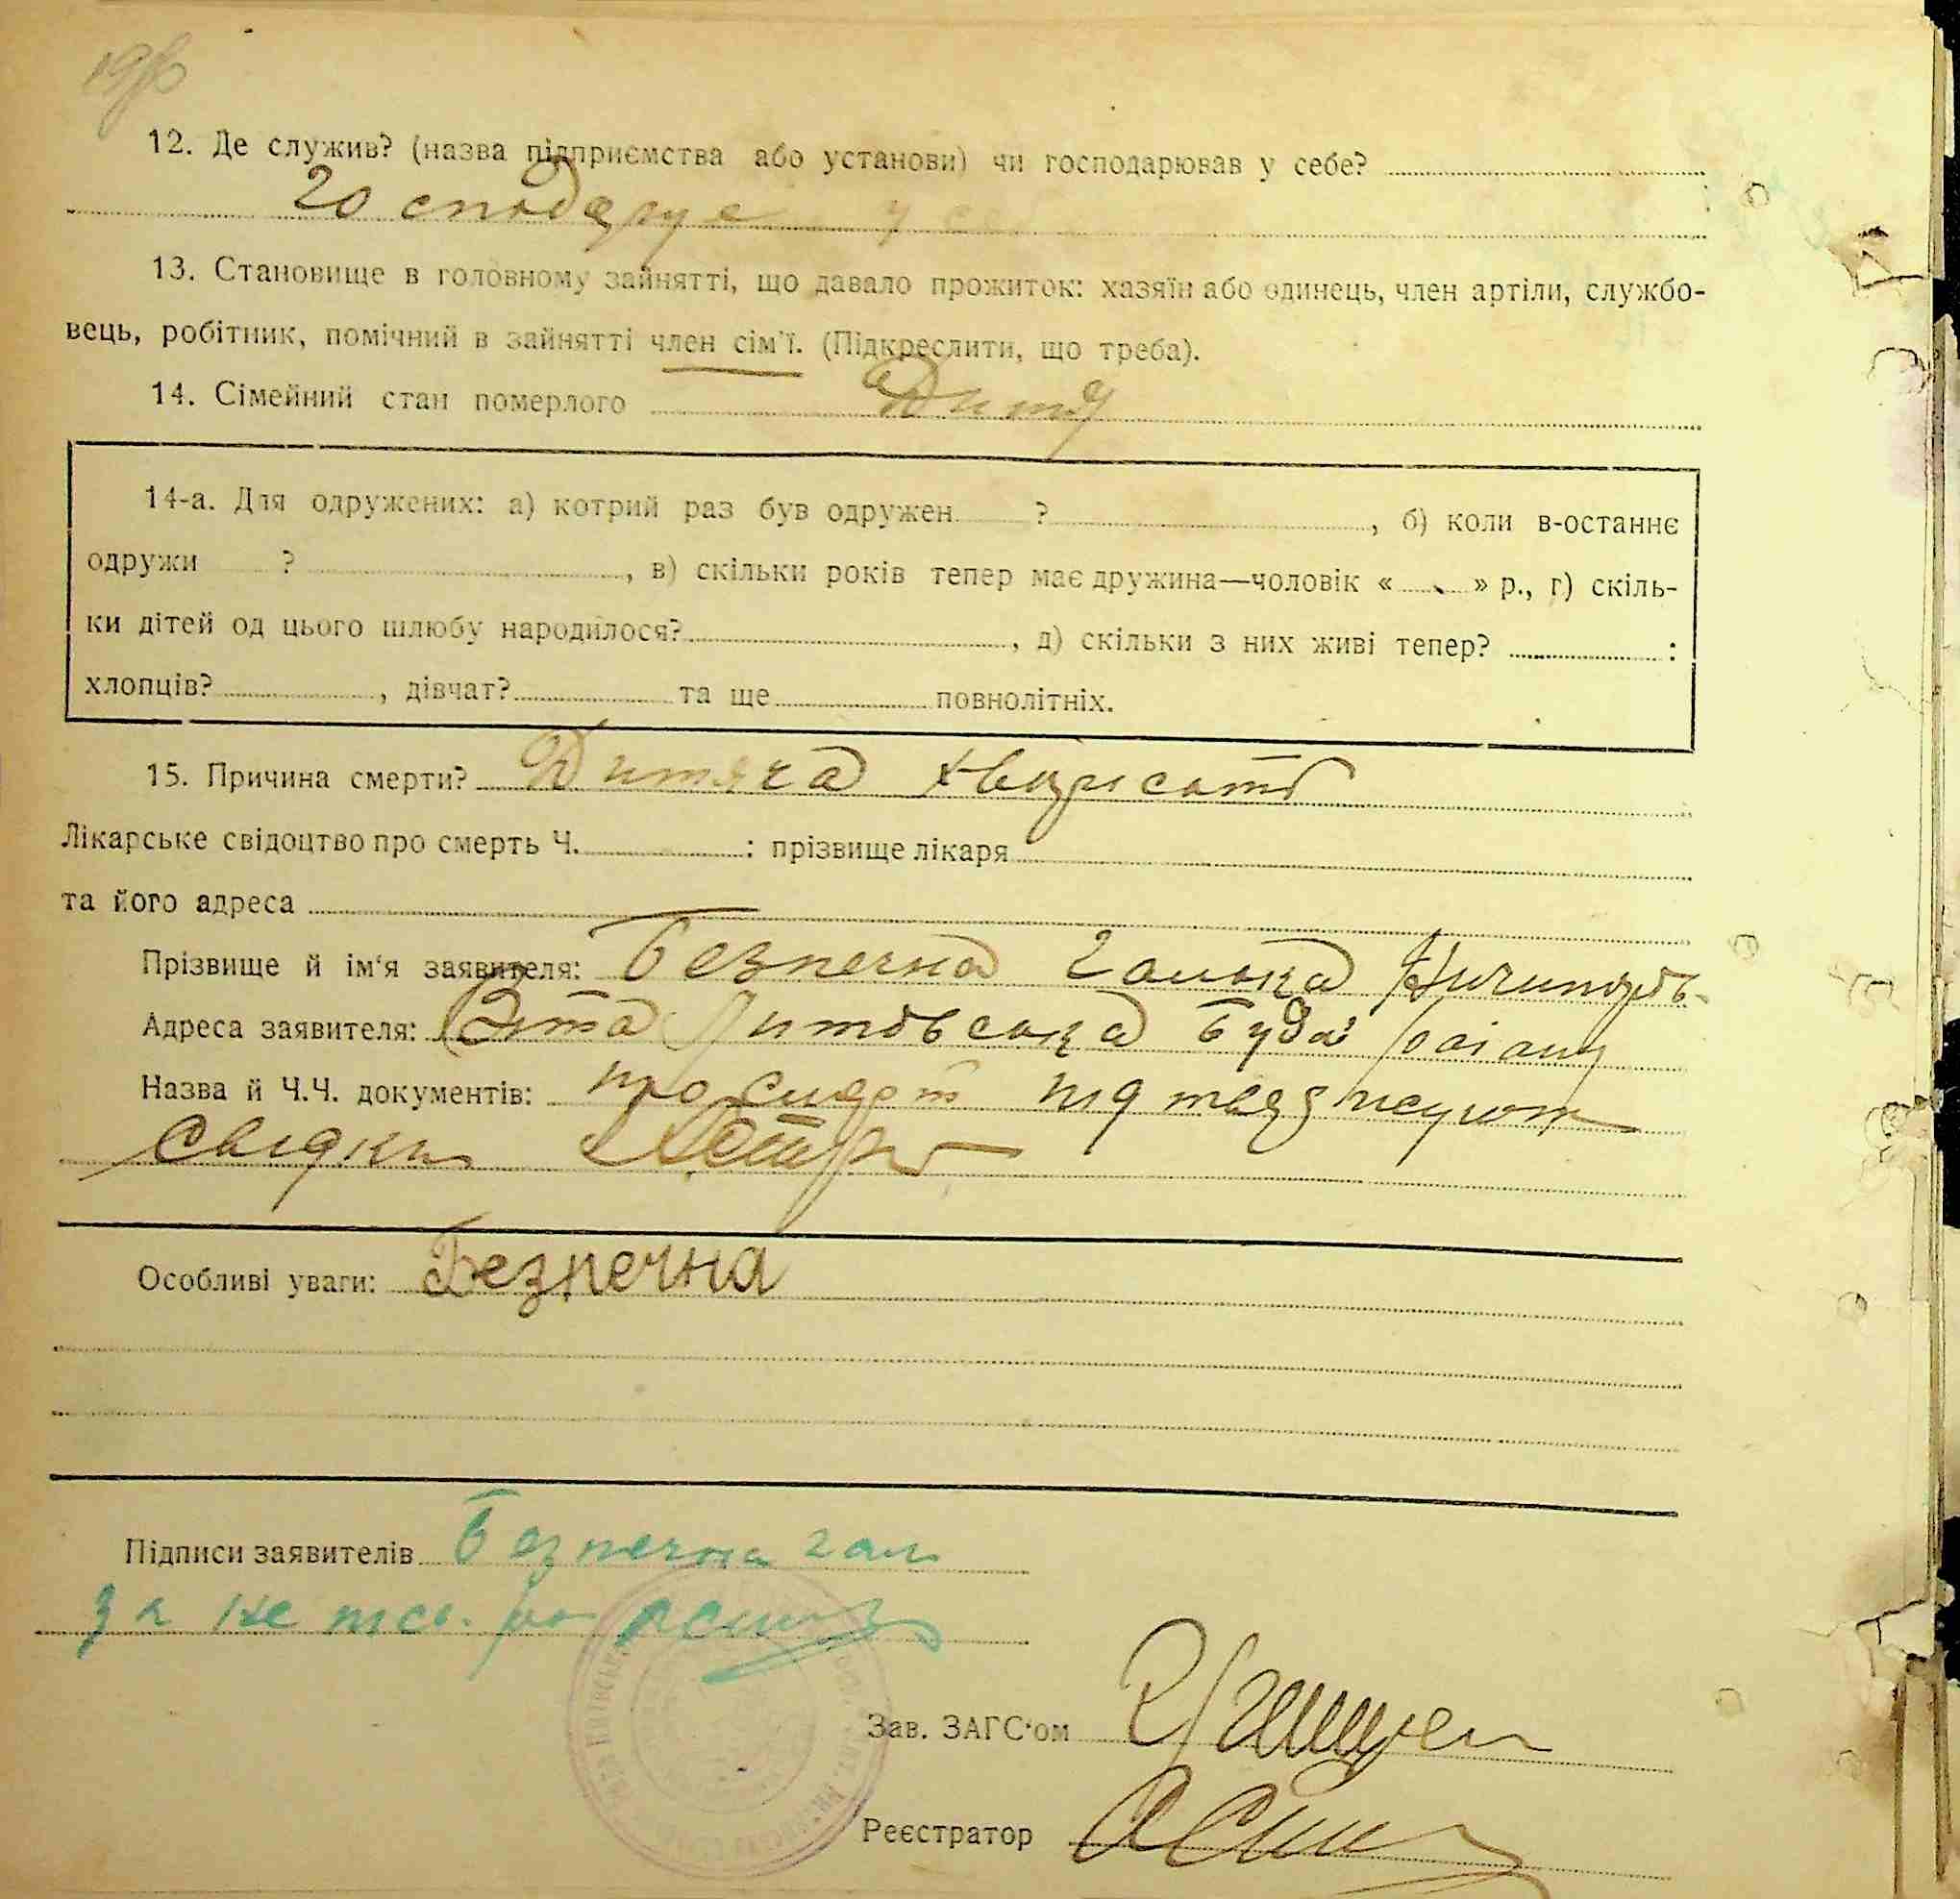 12. Де служив? (назва підприємства або установи) чи господарював у себе?
господарує у се
13. Становище в головному зайнятті, що давало прожиток: хазяїн або одинець, член артіли, службо-
вець, робітник, помічний в зайнятті член сім'ї. (Підкреслити, що треба).
14. Сімейний стан померлого Дитя
14-а. Для одружених: а) котрий раз був одружен ? , б) коли в-останнє
одружи ? , в) скільки років тепер має дружина—чоловік « » р., г) скіль-
ки дітей од цього шлюбу народилося? , д) скільки з них живі тепер? :
хлопців? , дівчат? та ще повнолітніх.
15. Причина смерти? Дитяча
Лікарське свідоцтво про смерть Ч. : прізвище лікаря
та його адреса
Прізвище й ім'я заявителя: Безпечна Галька Ничипорів-
Адреса заявителя: Литовська Буда
Назва й Ч.Ч. документів:
свідки
Особливі уваги: Безпечна
Підписи заявителів Безпечна Гал
за не
Зав. ЗАГС'ом
Реєстратор